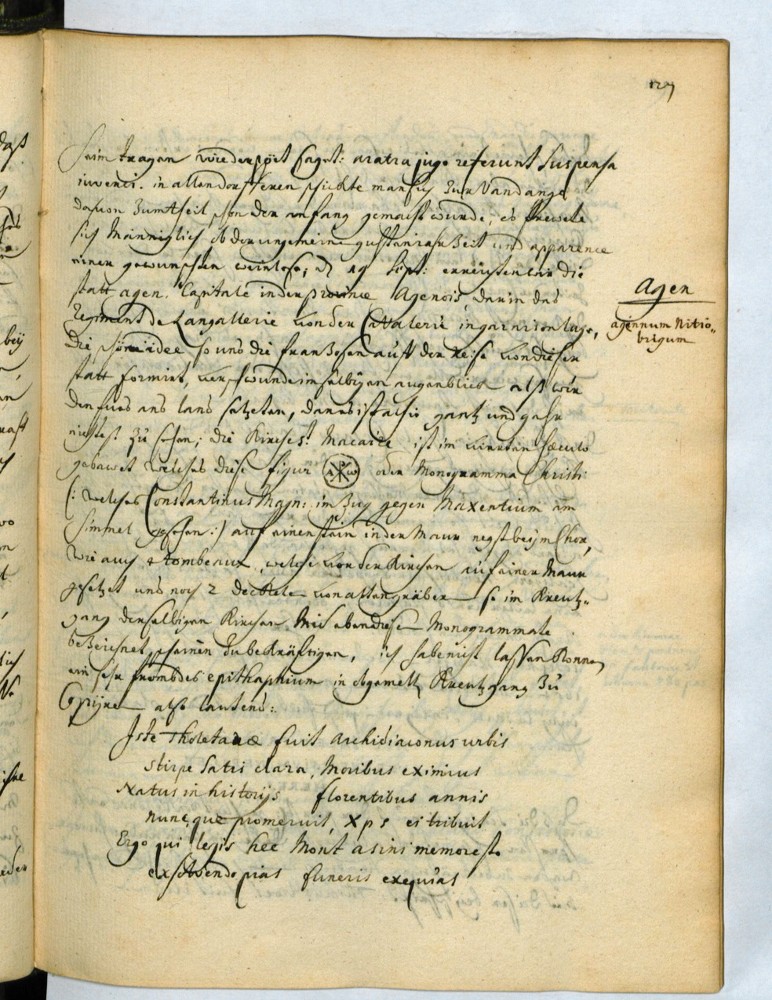 127
heim tragen wie der poët sagt: aratra jugo referunt suspensa
iuvenci. in allen dorfferen schickte man sich zur Vandange
davon zum theil schon der anfang gemacht wurde, es
sich Männiglich ob der ungemeine zeit und apparence
einer gewunschten weinlese; d 19 Sept: erreichten wir die
statt agen. Capitale in der province Agenois darin das
Regiment de Langallerie von der Cavalerie in garnison lage,
Agen
agennum Nitio-
brigum
die schöne idee so uns die franzosen auff der reise von dieser
statt formirt, verschwunde im selbigen augenblick als wir
den fues ans land setzeten, dan es ist alhie gantz und gahr
nichtes zu sehen; die Kirche St Macaire ist im sæculo
gebawet welches diese figur APω oder Monogramma Christi
(: welches Constantinus Magn: im Zug gegen Maxentium am
himmel gesehen :) auf einen stein in der Maur negst beym Chor,
wie auch 4 tombeaux, welche von der Kirchen auf einer Maur
gesetzet und noch 2 deckele von alten gräber so im Kreutz-
gang derselbigen Kirchen Mit eben diesen Monogrammate
bezeichnet scheinen zu bekräftigen, ich habe nicht lassen können
ein sehr frembdes epithaphium in Kreutzgang zu
Copijren also lautend:
Iste Tholetanæ fuit archidiaconus urbis
Stirpe Satis clara, Moribus eximius
Natus in historijs florentibus annis
nunc, que promeruit, Xps ei tribuit
Ergo qui legis hec Mont asini memor esto
exsolvendo pias funeris exequias